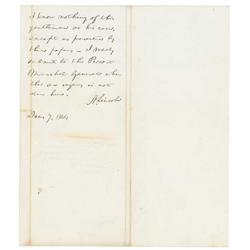 I know nothing of this
gentleman or his case,
except as presented by
these papers - I merely
to the Provost
Marshal General who
this is not
done here.
A. Lincoln
7, 1864